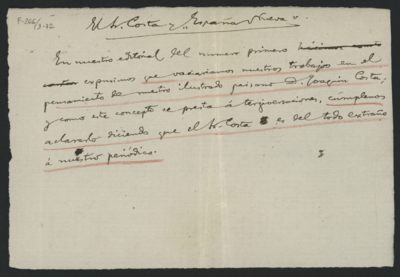 El Sr. Costa y "España Nueva".
En nuestro editorial del número primero
expusimos que vaciaríamos nuestros trabajos en el
pensamiento de nuestro ilustrado paisano D. Joaquín Costa;
y como este concepto se presta á tergiversaciones, cúmplenos
aclararlo diciendo que el Sr. Costa es del todo extraño
á nuestro periódico.